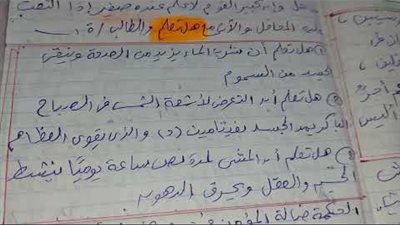 وإن كبير القوم لا علم عنده صغير إذا التفت
عليه المحافل والآن مع هل تعلم والطالب/ة
هل تعلم أن شرب الماء يزيد من الصحة وينقي
الجسد من السموم
هل تعلم أن التعرض لأشعة الشمس في الصباح
الباكر يمد الجسد بفيتامين (د) والآن يقوي العظام
هل تعلم أن المشي لمدة نصف ساعة يوميًا ينشط
الجسم والعقل ويحرق الدهون
الحكمة ضالة المؤمن